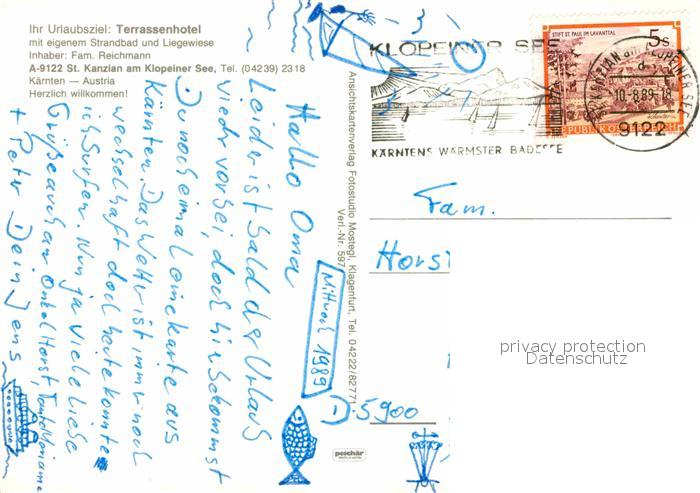 Ihr Urlaubsziel: Terrassenhotel
mit eigenem Strandbad und Liegewiese
Inhaber: Fam. Reichmann
A-9122 St. Kanzian am Klopeiner See, Tel. (04239) 2318
Kärnten — Austria
Herzlich willkommen!
Hallo Oma
Leider ist bald der Urlaub
wieder vorbei, doch hier bekommst
Du noch einmal eine Karte aus
Kärnten. Das Wetter ist immer noch
wechselhaft doch heute konnte
ich Surfen. Nun ja viele liebe
Grüße auch an Onkel Horst, Tante
+ Peter Dein Jens
Mittwoch 1989
Ansichtskartenverlag Fotostudio Mostegl, Klagenfurt, Tel. 04222/82771
Verl.-Nr. 597
KLOPEINER SEE
KÄRNTENS WÄRMSTER BADESEE
STIFT ST. PAUL IM LAVANTTAL
5s
REPUBLIK ÖSTERREICH
ST. KANZIAN am KLOPEINER SEE
d
10.-8.89-18
9122
Fam.
Horst
D-5900
privacy protection
Datenschutz